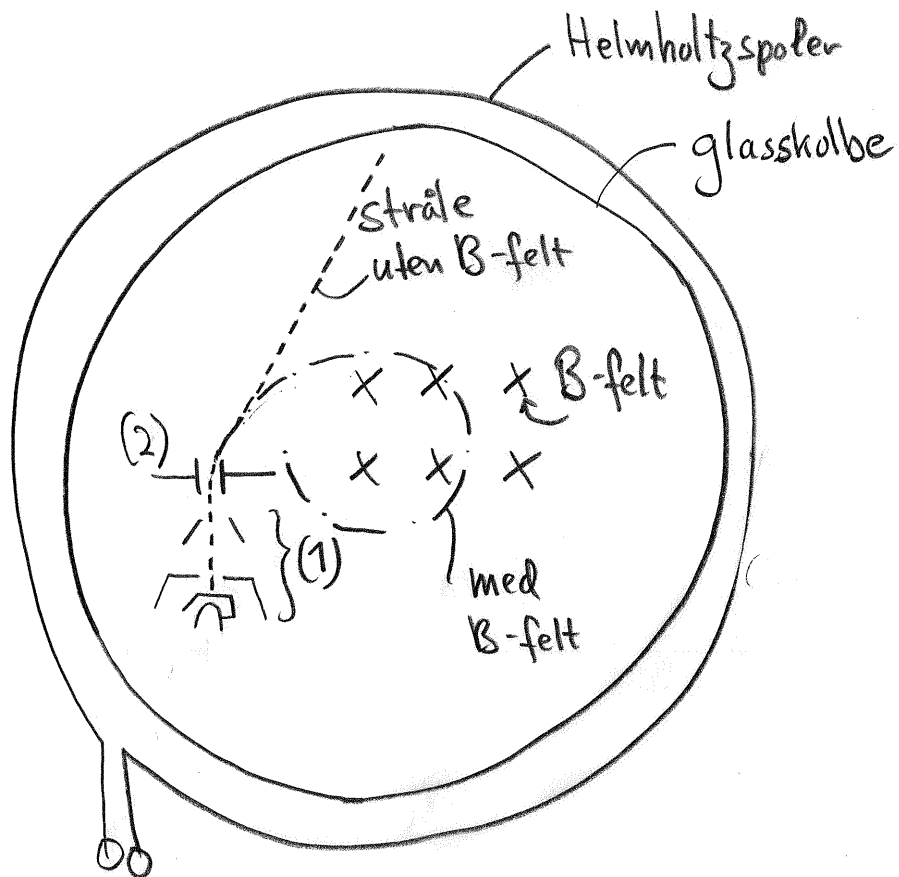 Helmholtzspoler
glasskolbe
stråle
uten B-felt
B-felt
(2)
(1)
med
B-felt